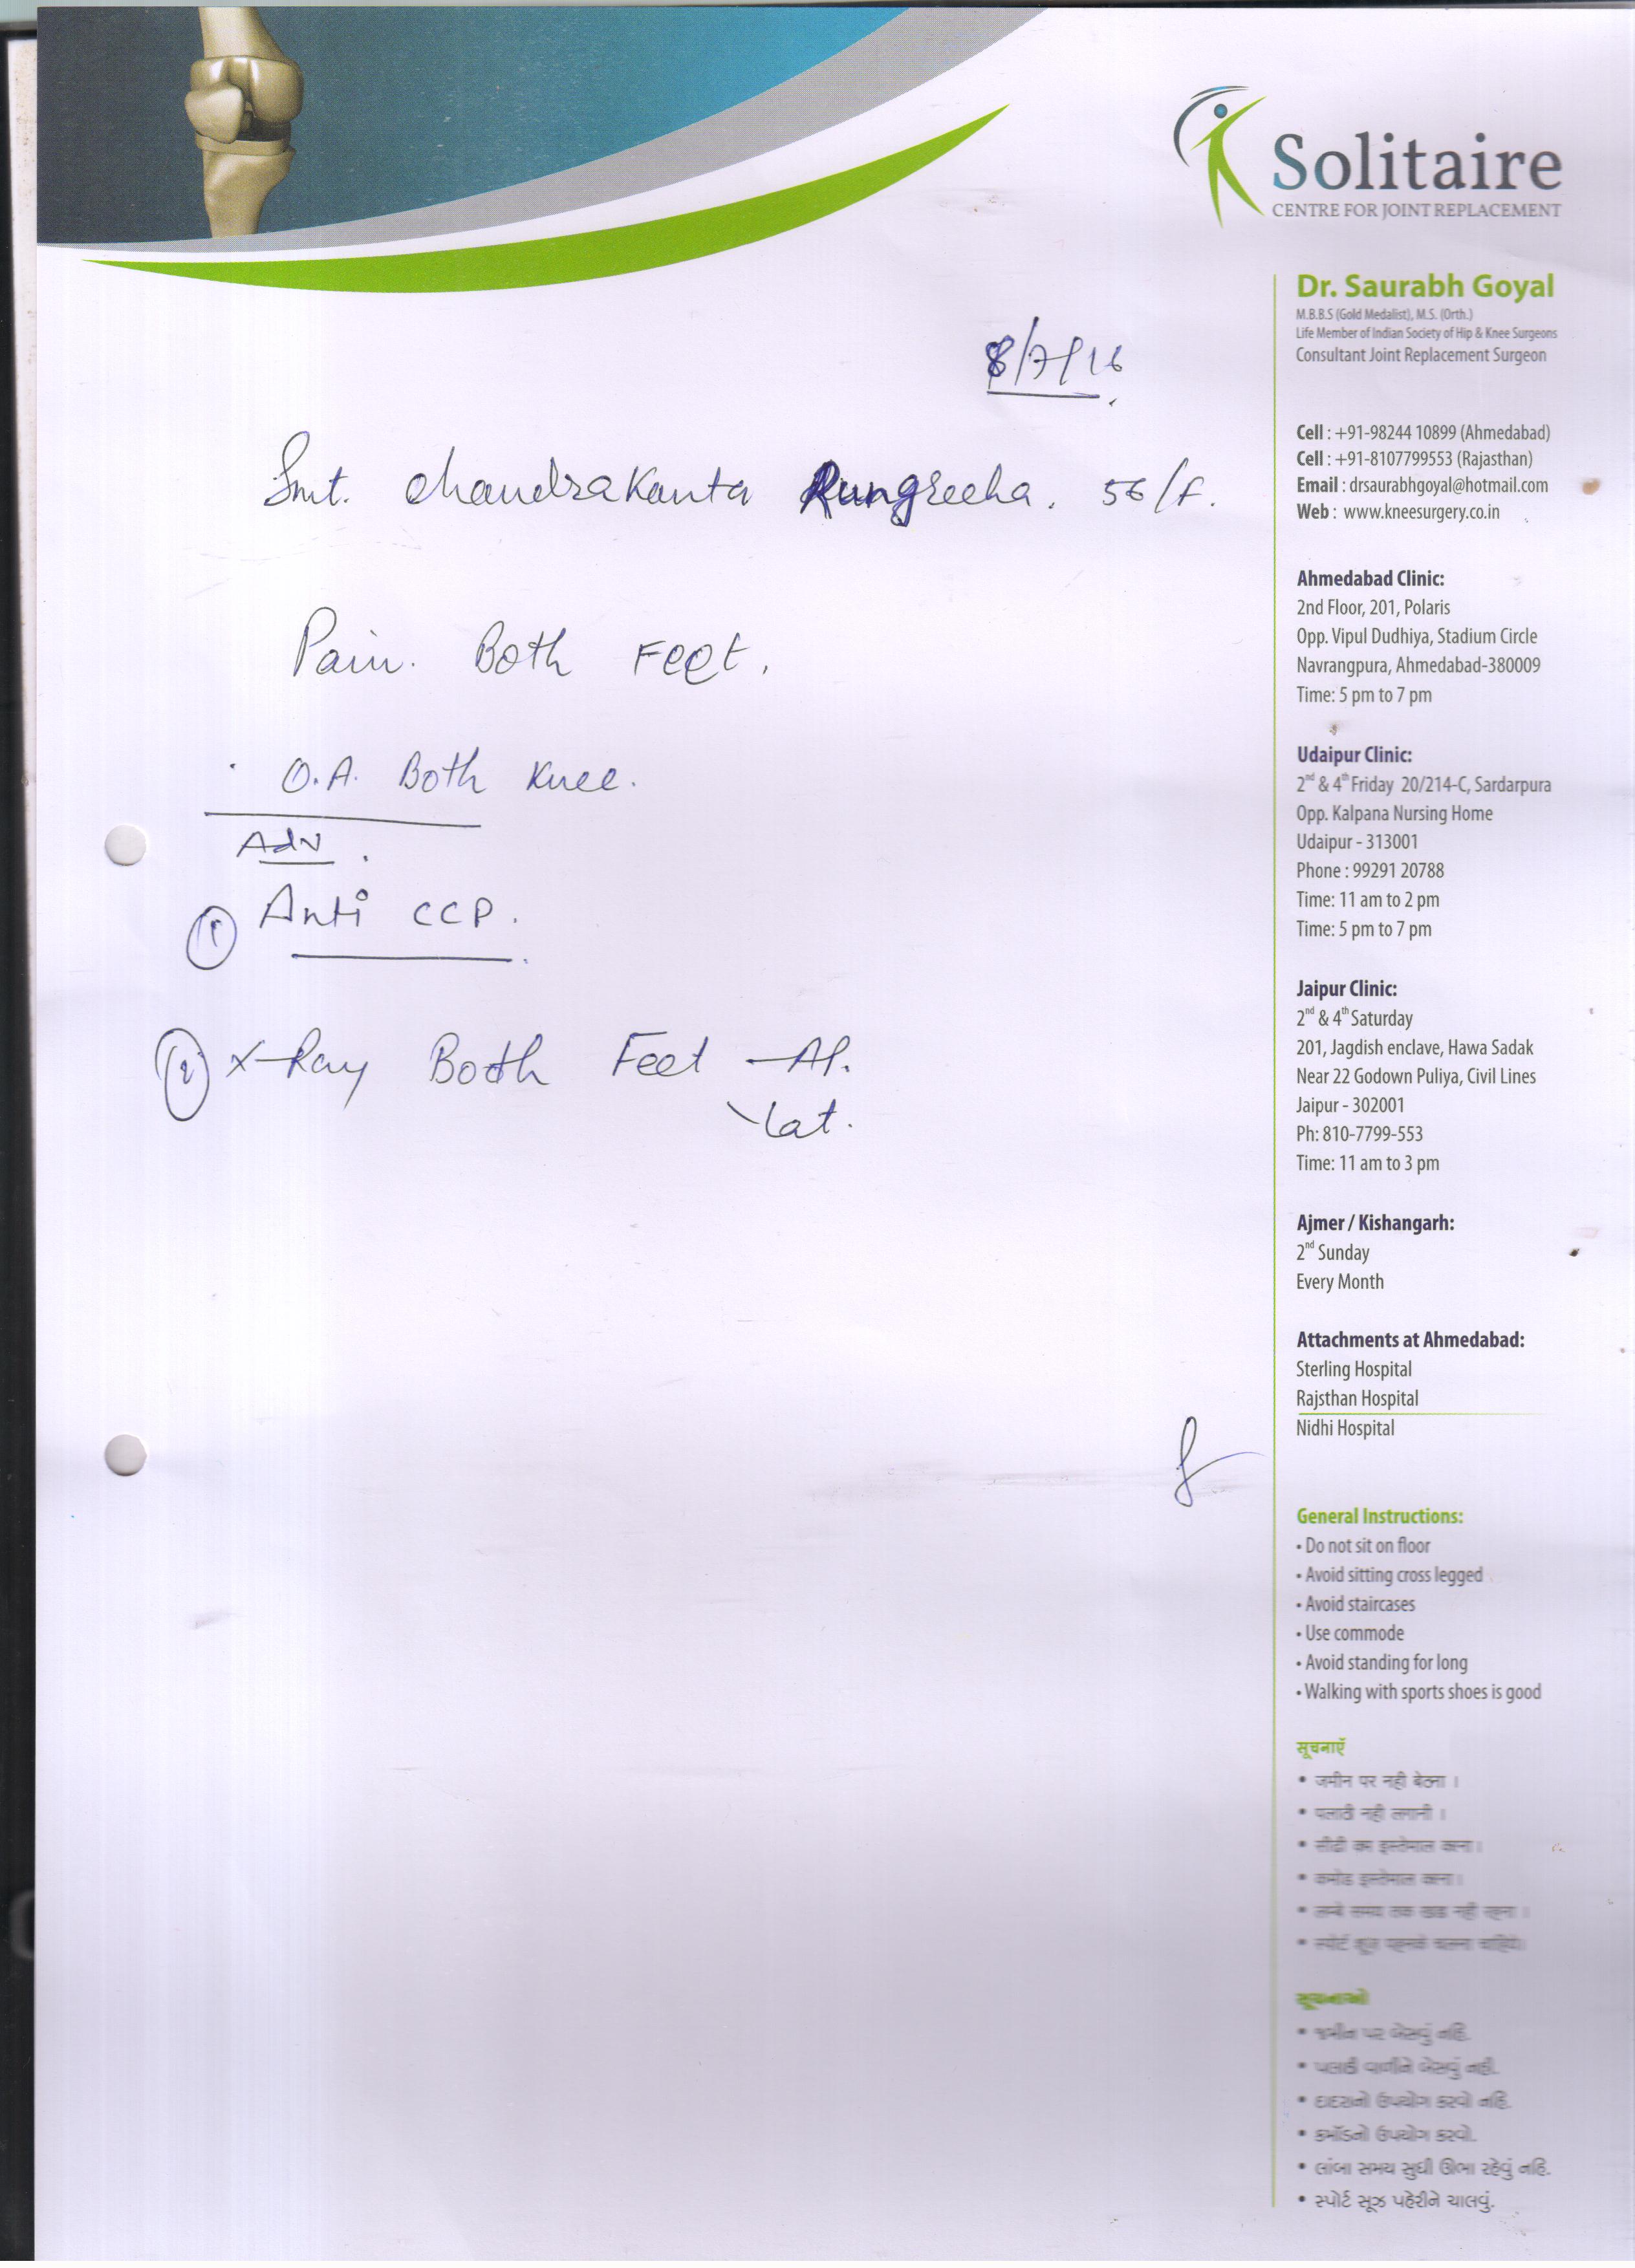 Solitaire
CENTRE FOR JOINT REPLACEMENT
Dr. Saurabh Goyal
M.B.B.S (Gold Medalist), M.S. (Orth.)
Life Member of Indian Society of Hip & Knee Surgeons
Consultant Joint Replacement Surgeon
8/7/16
Smt. Chandrakanta 56/F.
Pain. Both Feet.
O.A. Both Knee.
Adv.
(1) Anti CCP.
(2) X-Ray Both Feet - AP.
- Lat.
Cell : +91-98244 10899 (Ahmedabad)
Cell : +91-8107799553 (Rajasthan)
Email : drsaurabhgoyal@hotmail.com
Web : www.kneesurgery.co.in
Ahmedabad Clinic:
2nd Floor, 201, Polaris
Opp. Vipul Dudhiya, Stadium Circle
Navrangpura, Ahmedabad-380009
Time: 5 pm to 7 pm
Udaipur Clinic:
2nd & 4th Friday 20/214-C, Sardarpura
Opp. Kalpana Nursing Home
Udaipur - 313001
Phone : 99291 20788
Time: 11 am to 2 pm
Time: 5 pm to 7 pm
Jaipur Clinic:
2nd & 4th Saturday
201, Jagdish enclave, Hawa Sadak
Near 22 Godown Puliya, Civil Lines
Jaipur - 302001
Ph: 810-7799-553
Time: 11 am to 3 pm
Ajmer / Kishangarh:
2nd Sunday
Every Month
Attachments at Ahmedabad:
Sterling Hospital
Rajsthan Hospital
Nidhi Hospital
General Instructions:
• Do not sit on floor
• Avoid sitting cross legged
• Avoid staircases
• Use commode
• Avoid standing for long
• Walking with sports shoes is good
सूचनाएँ
• जमीन पर नही बेठना ।
• पलाठी नही लगानी ।
• सीढी कम इस्तेमाल करना।
• कमोड इस्तेमाल करना।
• लम्बे समय तक खडा नही रहना ।
• स्पोर्ट शूज पहनके चलना चाहिये।
સૂચનાઓ
• જમીન પર બેસવું નહિ.
• પલાઠી વાળીને બેસવું નહી.
• દાદરાનો ઉપયોગ કરવો નહિ.
• કમૉડનો ઉપયોગ કરવો.
• લાંબા સમય સુધી ઊભા રહેવું નહિ.
• સ્પોર્ટ સૂઝ પહેરીને ચાલવું.